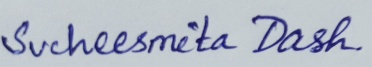 Sucheesmita Dash.